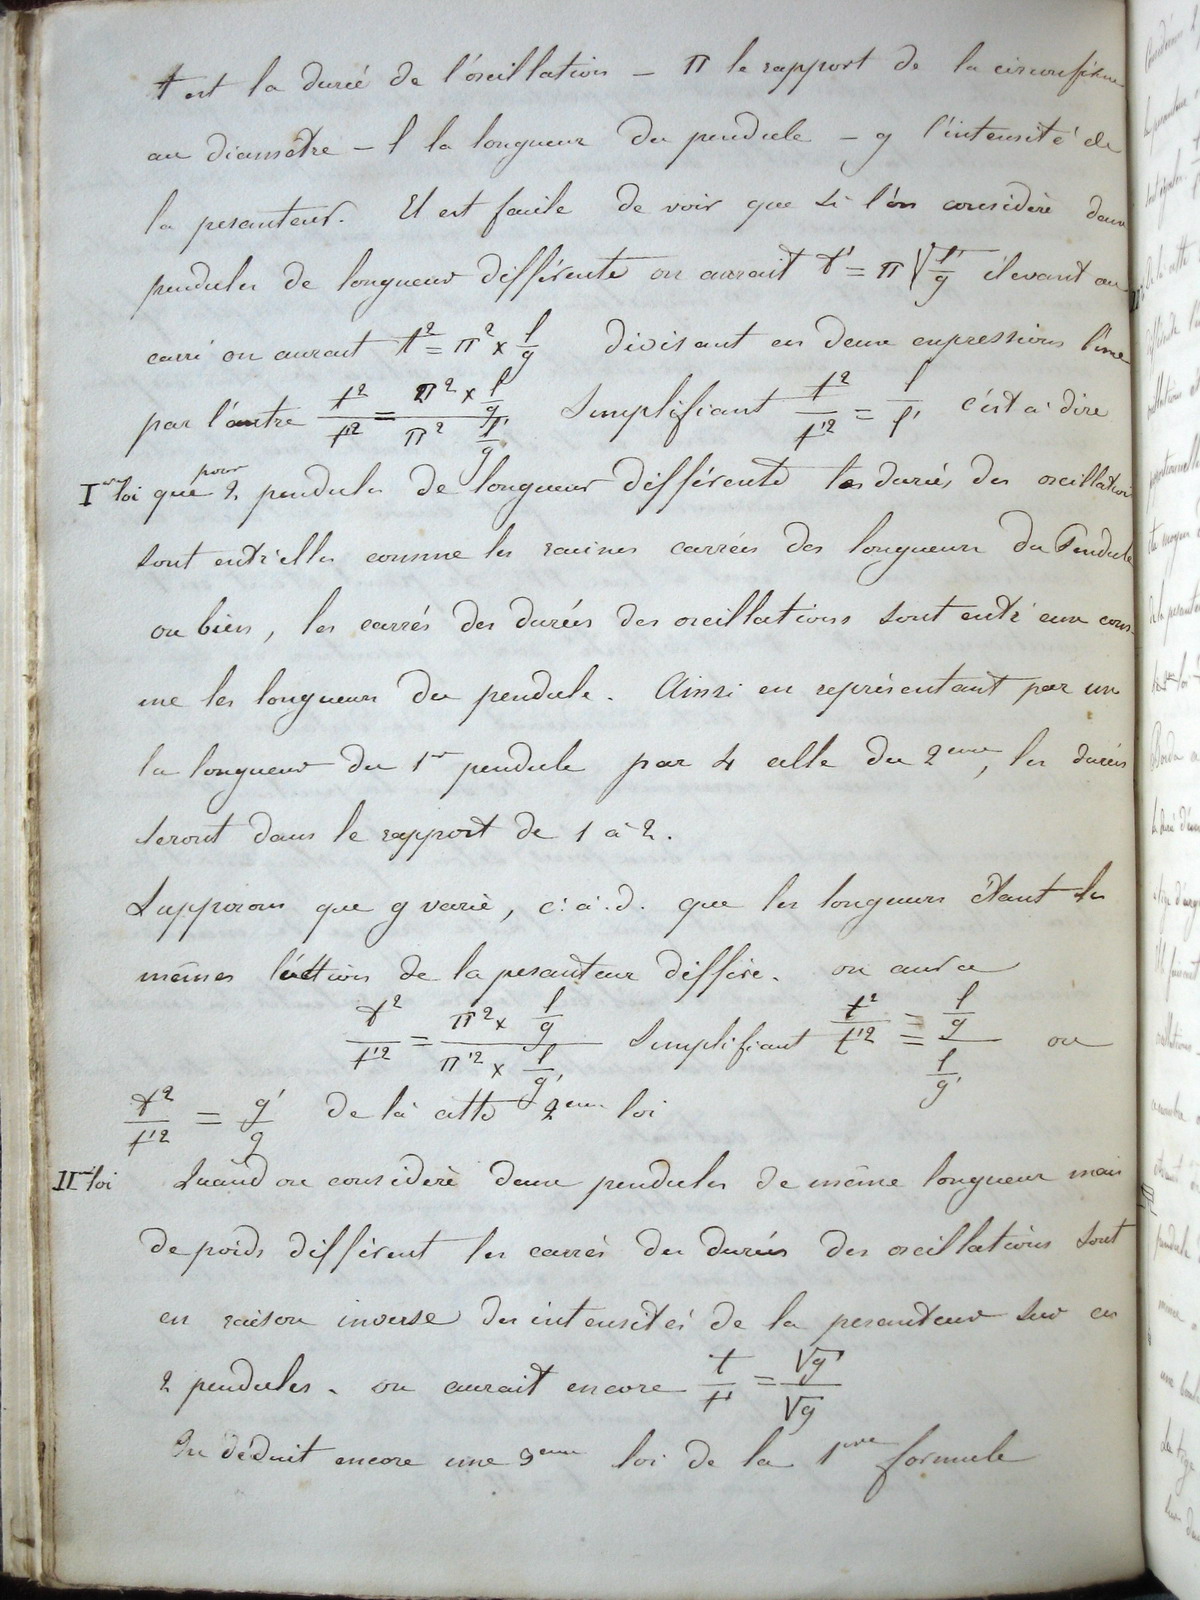 t est la durée de l'oscillation – π le rapport de la circonférence
au diamètre – l la longueur du pendule – g l'intensité de
la pesanteur. Il est facile de voir que si l'on considère deux
pendules de longueur différente on aurait t' = π √l'/g élevant au
carré on aurait t² = π² × l/g divisant ces deux expressions l'une
par l'autre t²/t'² = π² × l/g / π² l'/g Simplifiant t²/t'² = l/l' c'est à dire
Ière loi que pour 2 pendules de longueur différente les durées des oscillations
sont entr'elles comme les racines carrées des longueurs du Pendule
ou bien, les carrés des durées des oscillations sont entr'eux com-
me les longueurs du pendule. Ainsi en représentant par un
la longueur du 1er pendule par 4 celle du 2eme, les durées
seront dans le rapport de 1 à 2.
Supposons que g varie, c. à. d. que les longueurs étant les
mêmes l'action de la pesanteur diffère. on aura
t²/t'² = π² × l/g / π'² × l/g' Simplifiant t²/t'² = l/g / l/g' ou
t²/t'² = g'/g de là cette 2eme loi
IIeme loi Quand on considère deux pendules de même longueur mais
de poids différent les carrés des durées des oscillations sont
en raison inverse des intensités de la pesanteur sur ces
2 pendules. on aurait encore t/t' = √g'/√g
On déduit encore une 3eme loi de la 1ere formule